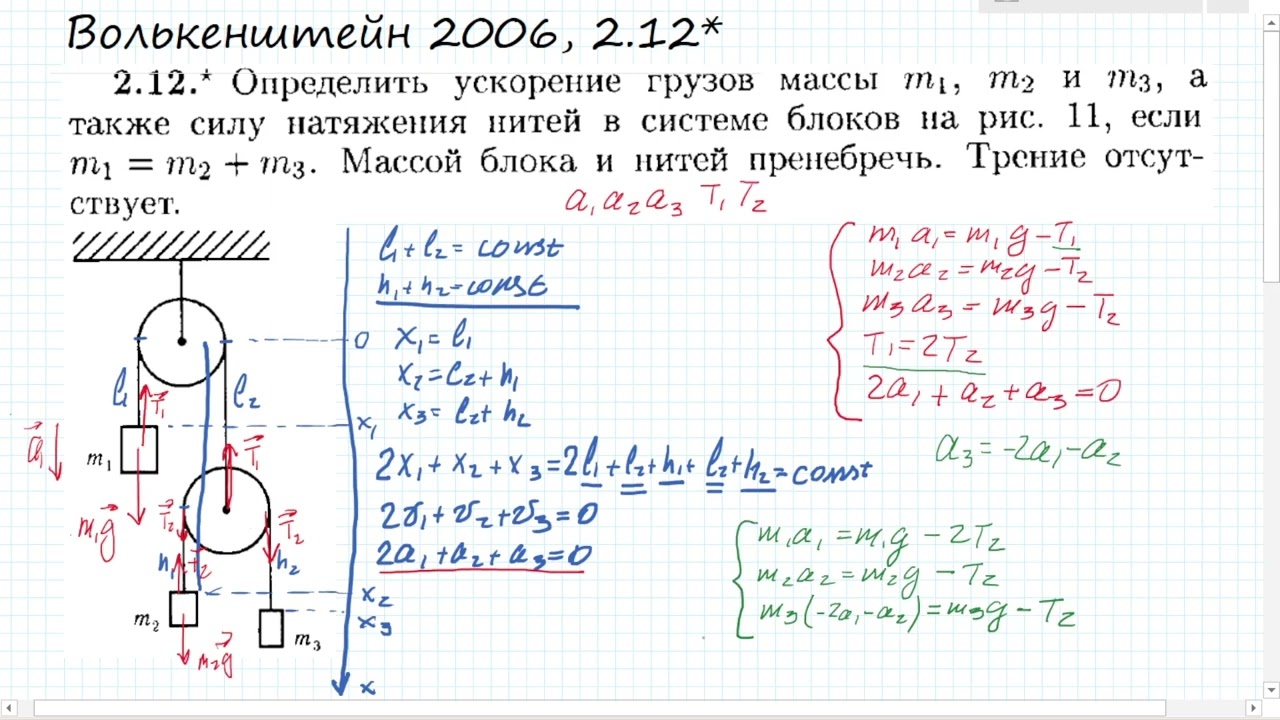 Волькенштейн 2006, 2.12*
2.12.* Определить ускорение грузов массы m₁, m₂ и m₃, а
также силу натяжения нитей в системе блоков на рис. 11, если
m₁ = m₂ + m₃. Массой блока и нитей пренебречь. Трение отсут-
ствует.
a₁ a₂ a₃ T₁ T₂
l₁ + l₂ = const
h₁ + h₂ = const
x₁ = l₁
x₂ = l₂ + h₁
x₃ = l₂ + h₂
2x₁ + x₂ + x₃ = 2l₁ + l₂ + h₁ + l₂ + h₂ = const
2v₁ + v₂ + v₃ = 0
2a₁ + a₂ + a₃ = 0
m₁a₁ = m₁g − T₁
m₂a₂ = m₂g − T₂
m₃a₃ = m₃g − T₂
T₁ = 2T₂
2a₁ + a₂ + a₃ = 0
a₃ = −2a₁ − a₂
m₁a₁ = m₁g − 2T₂
m₂a₂ = m₂g − T₂
m₃(−2a₁ − a₂) = m₃g − T₂
0
l₁
l₂
T₁
x₁
a₁
m₁
T₁
m₁g
T₂
T₂
h₁
T₂
h₂
x₂
m₂
x₃
m₃
m₂g
x